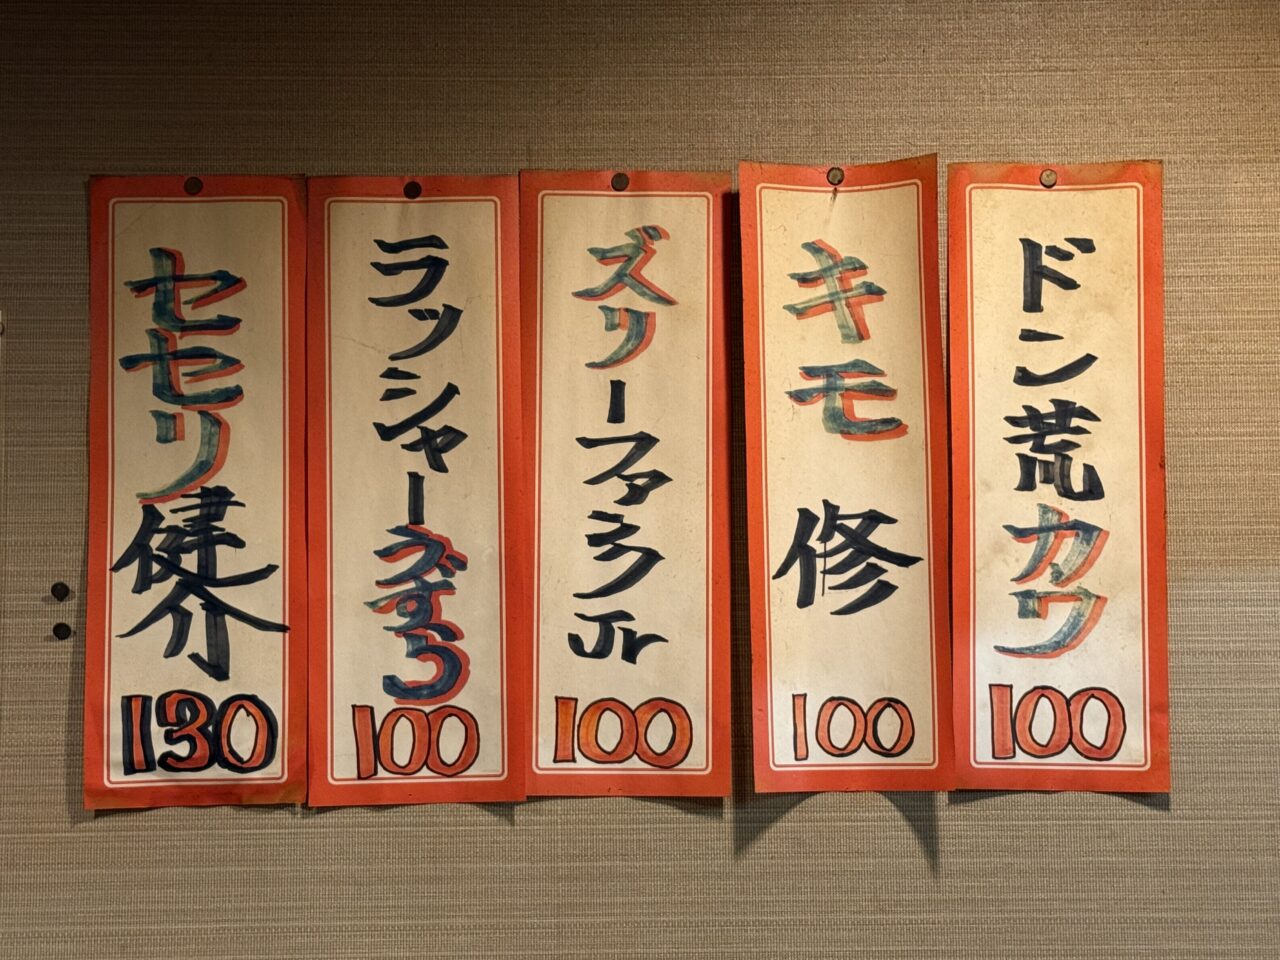 ドン荒カワ
100
キモ修
100
ズリーファンクJr
100
ラッシャーうずら
100
セセリ健介
130